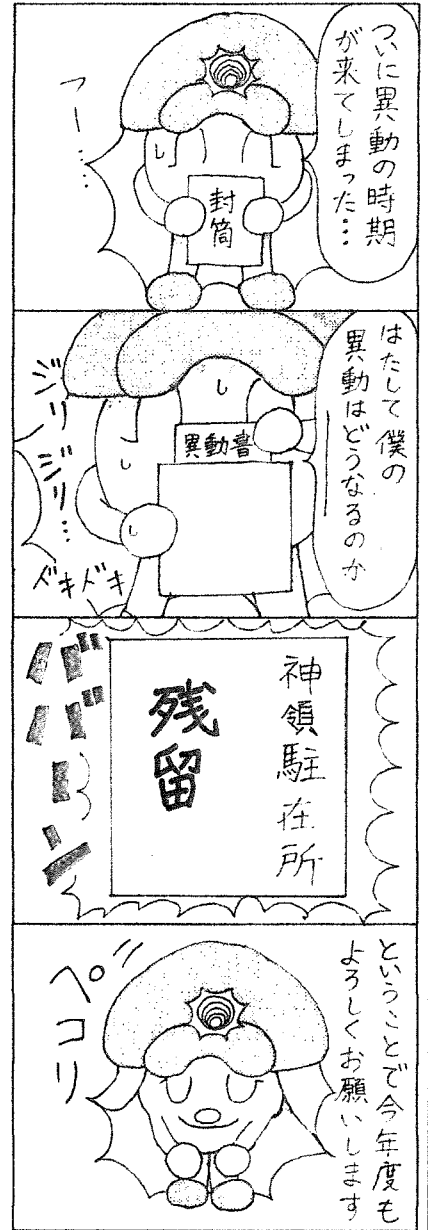 ついに異動の時期
が来てしまった…
う～…
封筒
はたして僕の
異動はどうなるのか
異動書
ジリジリ…
ドキドキ
神領駐在所
残留
ババーン
ということで今年度も
よろしくお願いします
ペコリ